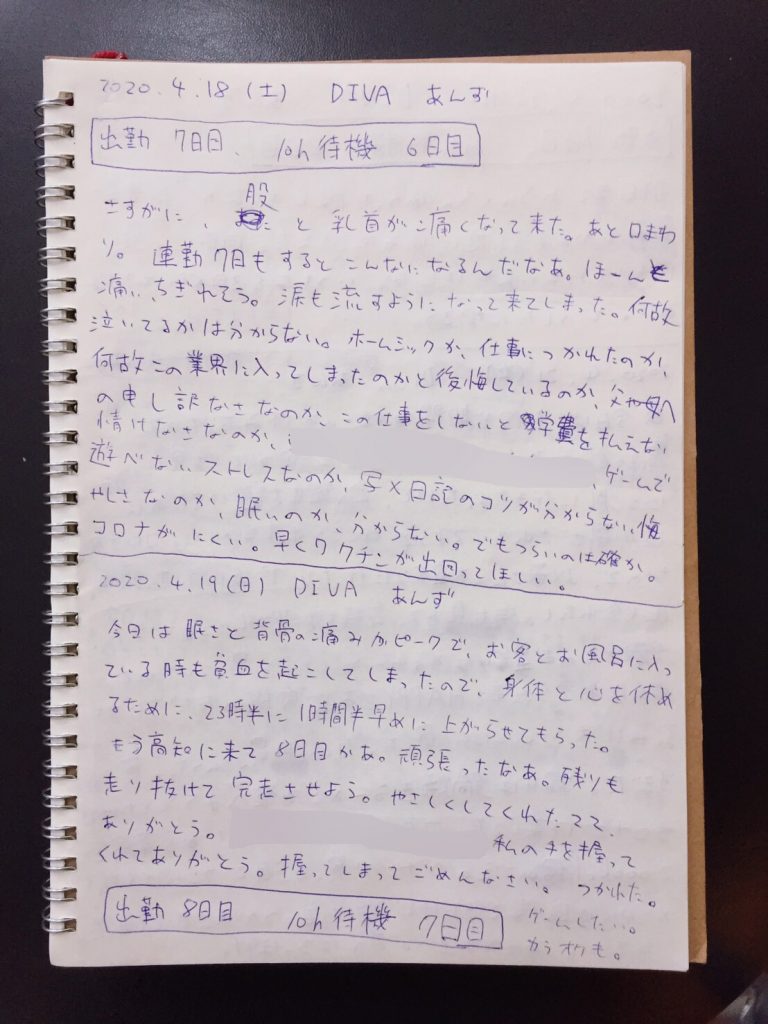 2020.4.18(土) DIVA あんず
出勤 7日目、 10h待機 6日目
さすがに、股と乳首が痛くなって来た。あと口まわ
り。連勤7日もするとこんなになるんだなあ。ほーんと
痛い、ちぎれそう。涙も流すようになって来てしまった。何故
泣いてるかは分からない。ホームシックか、仕事につかれたのか、
何故この業界に入ってしまったのかと後悔しているのか、父や母へ
の申し訳なさなのか、この仕事をしないと学費を払えない
情けなさなのか、
、ゲームで
遊べないストレスなのか、写メ日記のコツが分からない悔
やしさなのか、眠いのか、分からない。でもつらいのは確か。
コロナがにくい。早くワクチンが出回ってほしい。
2020.4.19(日) DIVA あんず
今日は眠さと背骨の痛みがピークで、お客とお風呂に入っ
ている時も貧血を起こしてしまったので、身体と心を休め
るために、23時半に1時間半早めに上がらせてもらった。
もう高知に来て8日目かあ。頑張ったなあ。残りも
走り抜けて完走させよう。やさしくしてくれた
ありがとう。
私の手を握って
くれてありがとう。握ってしまってごめんなさい。つかれた。
ゲームしたい。
カラオケも。
出勤 8日目 10h待機 7日目